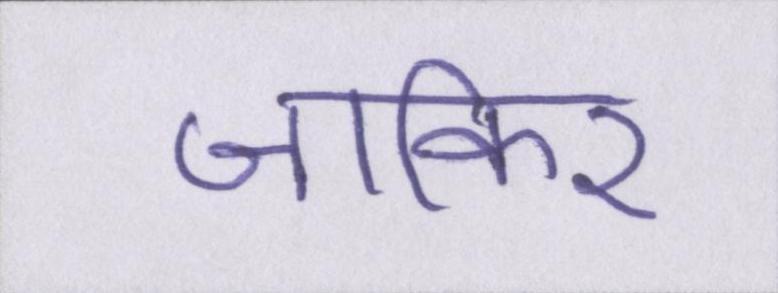 जाकिर